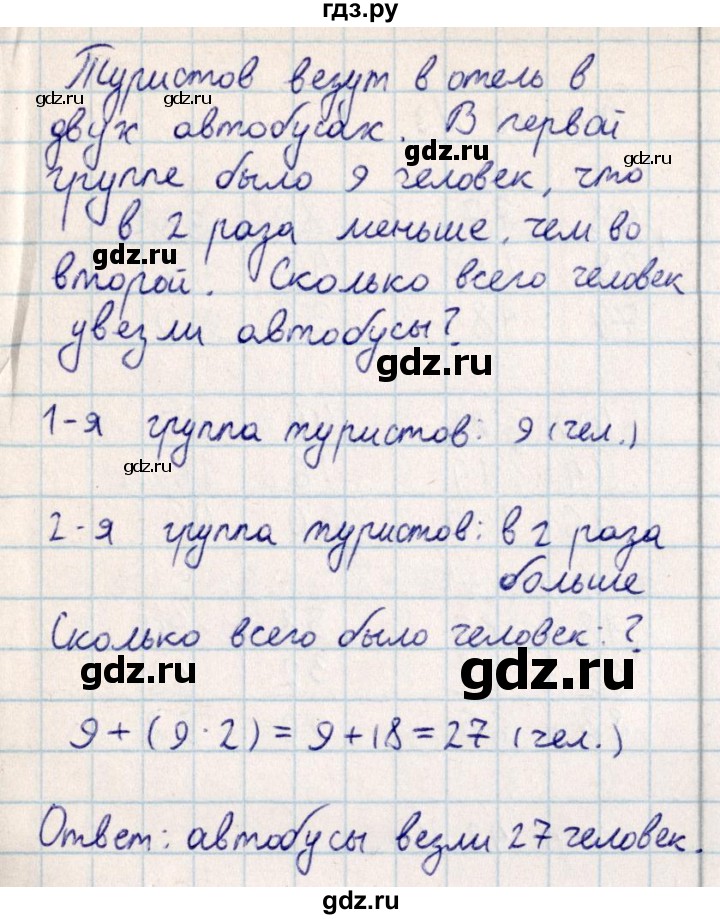 гдз.ру
Туристов везут в отель в
gdz.ru gdz.ru
двух автобусах. В первой
gdz.ru gdz.ru
группе было 9 человек, что
в 2 раза меньше, чем во
gdz.ru
второй. Сколько всего человек
увезли автобусы?
gdz.ru
1-я группа туристов: 9 (чел.)
gdz.ru
2-я группа туристов: в 2 раза
больше
Сколько всего было человек: ?
gdz.ru gdz.ru
9 + (9 · 2) = 9 + 18 = 27 (чел.)
Ответ: автобусы везли 27 человек.
gdz.ru